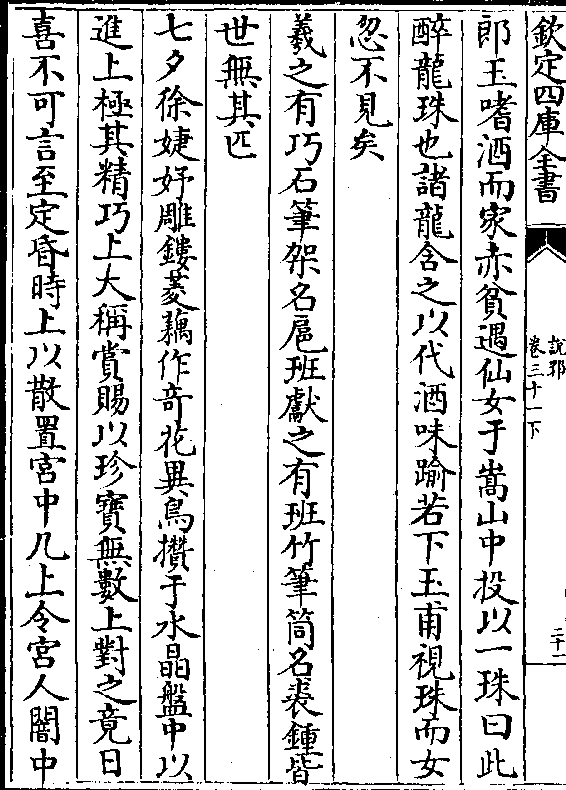 欽定四庫全書
說郛
卷三十一下
三十二
郎玉嗜酒而家赤貧遇仙女于嵩山中投以一珠曰此
醉龍珠也諸龍含之以代酒味踰若下玉甫視珠而女
忽不見矣
羲之有巧石筆架名扈班獻之有班竹筆筒名裘鍾皆
世無其匹
七夕徐婕妤雕鏤菱藕作竒花異鳥攢于水晶盤中以
進上極其精巧上大稱賞賜以珍寳無數上對之竟日
喜不可言至定昏時上以散置宫中几上令宫人闇中